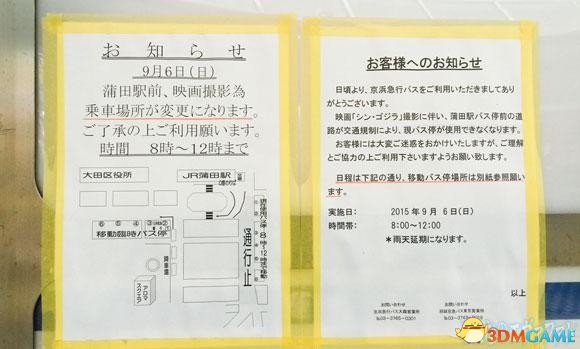 お知らせ
9月6日(日)
蒲田駅前、映画撮影為
乗車場所が変更になります。
ご了承の上ご利用願います。
時間 8時〜12時まで
大田区役所
JR蒲田駅
⑥⑤④③②①
移動臨時バス停
通行止
アロマ
スクエア
お客様へのお知らせ
日頃より、京浜急行バスをご利用いただきまして あり
がとうございます。
映画「シン・ゴジラ」撮影に伴い、蒲田駅バス停前の道
路が交通規制により、現バス停が使用できなくなります。
お客様には大変ご迷惑をおかけいたしますが、ご理解
とご協力の上ご利用下さいますようお願い致します。
日程は下記の通り、移動バス停場所は別紙参照願い
ます。
実施日: 2015年9月 6日(日)
時間帯: 8:00〜12:00
*雨天延期になります。
以上
お問い合わせ
京浜急行バス大森営業所
お問い合わせ
3DMGAME